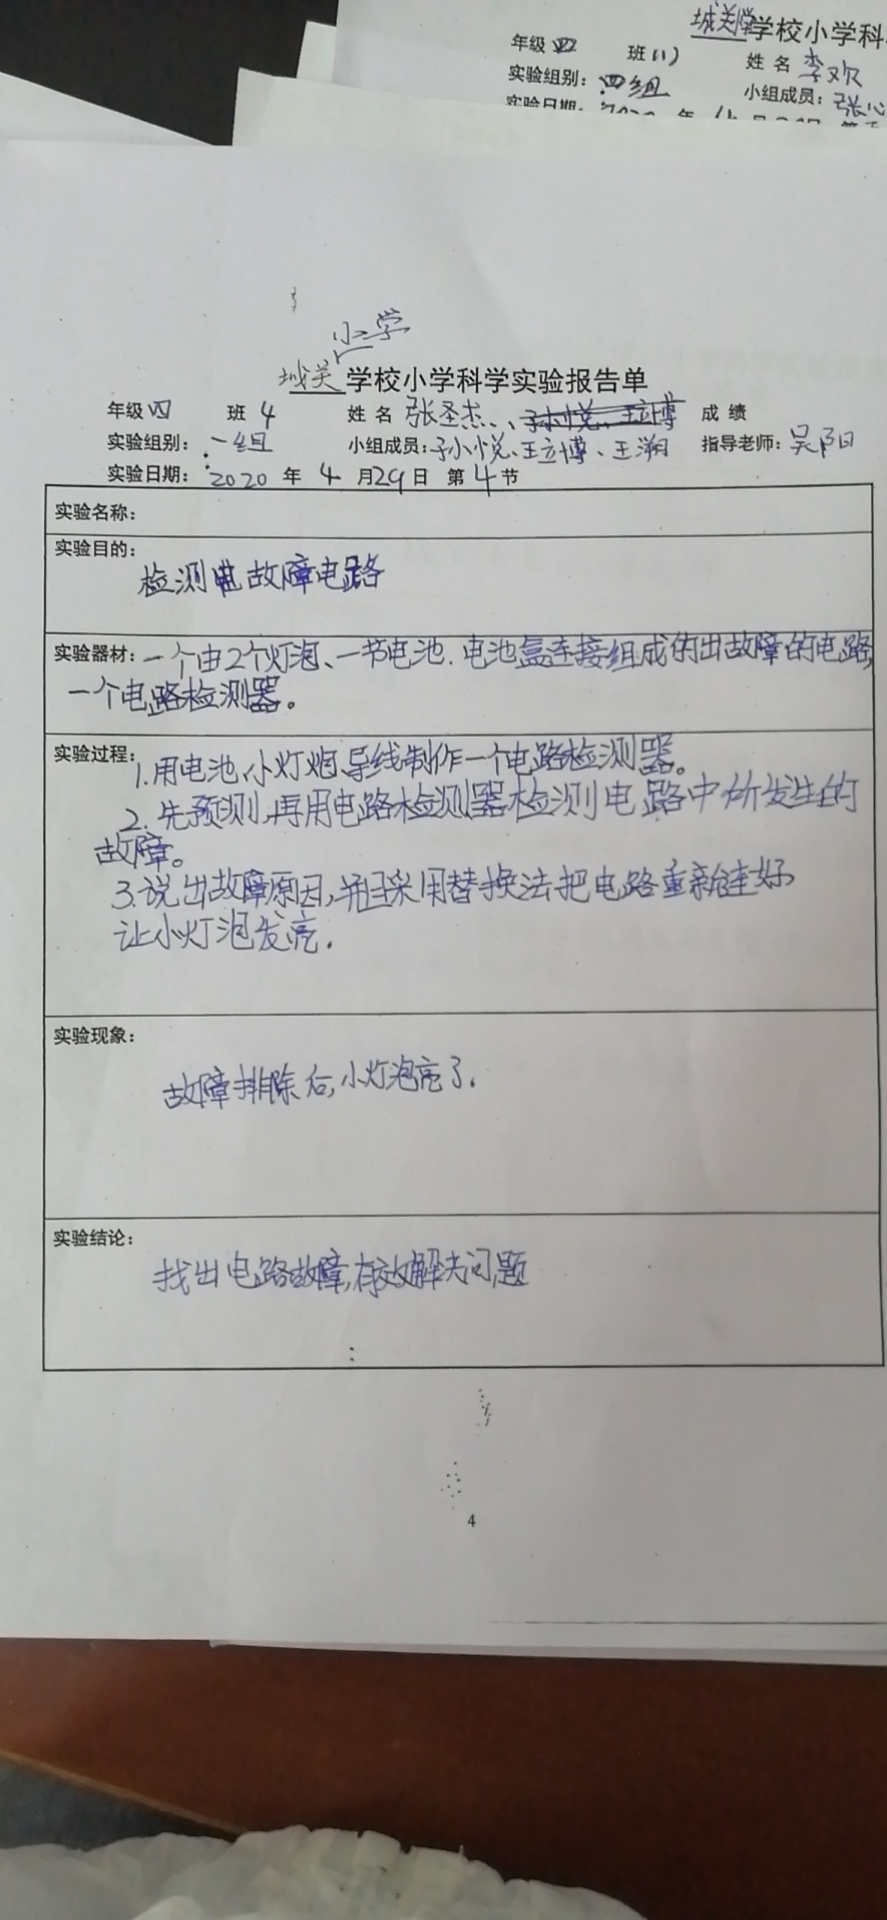 城关学校小学科
年级 四 班(1) 姓名 李欢
实验组别: 四组 小组成员: 张心
小学
城关学校小学科学实验报告单
年级 四 班 4 姓名 张圣杰、 成绩
实验组别: 一组 小组成员: 孙小悦、王立博、王溯 指导老师: 吴阳
实验日期: 2020 年 4 月29日 第4节
实验名称:
实验目的:
检测电故障电路
实验器材: 一个由2个灯泡、一节电池.电池盒连接组成的出故障的电路,
一个电路检测器。
实验过程: 1.用电池、小灯泡、导线制作一个电路检测器。
2.先预测,再用电路检测器检测电路中所发生的
故障。
3.说出故障原因,并且采用替换法把电路重新连好,
让小灯泡发亮.
实验现象:
故障排除后,小灯泡亮了.
实验结论:
找出电路故障,有效解决问题
4